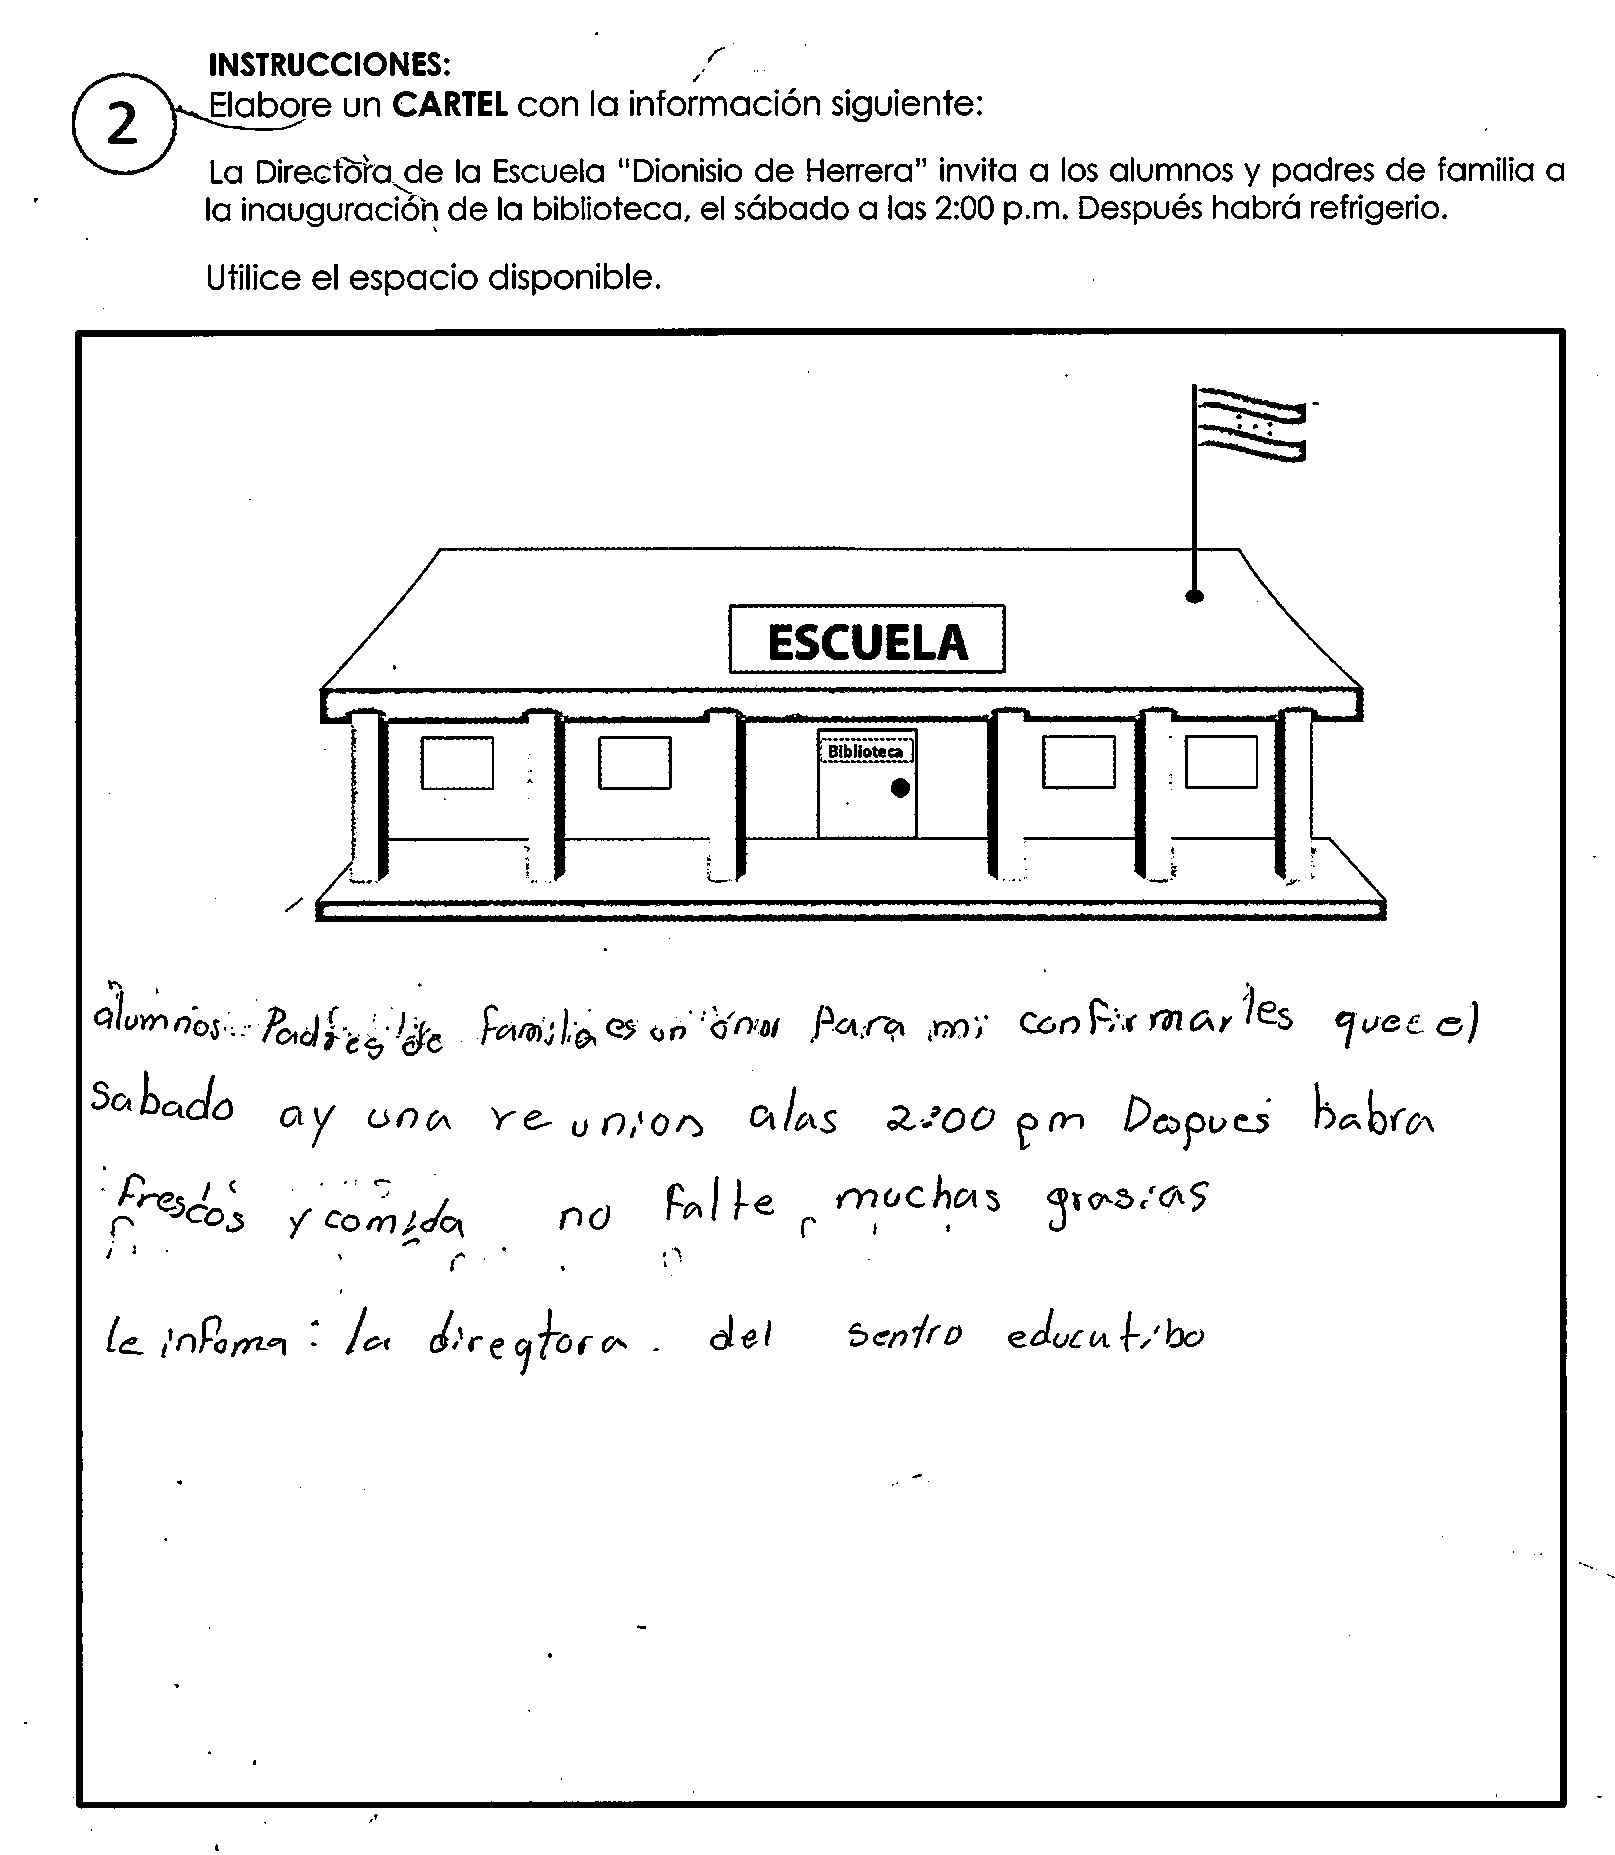 INSTRUCCIONES:
2
Elabore un CARTEL con la información siguiente:
La Directora de la Escuela "Dionisio de Herrera" invita a los alumnos y padres de familia a
la inauguración de la biblioteca, el sábado a las 2:00 p.m. Después habrá refrigerio.
Utilice el espacio disponible.
ESCUELA
Biblioteca
alumnos Padres de familia es un onor Para mi confirmarles quee el
sabado ay una reunion alas 2:00 pm Despues habra
Frescos y comida no Falte, muchas grasias
le infoma: la direqtora. del sentro educatibo